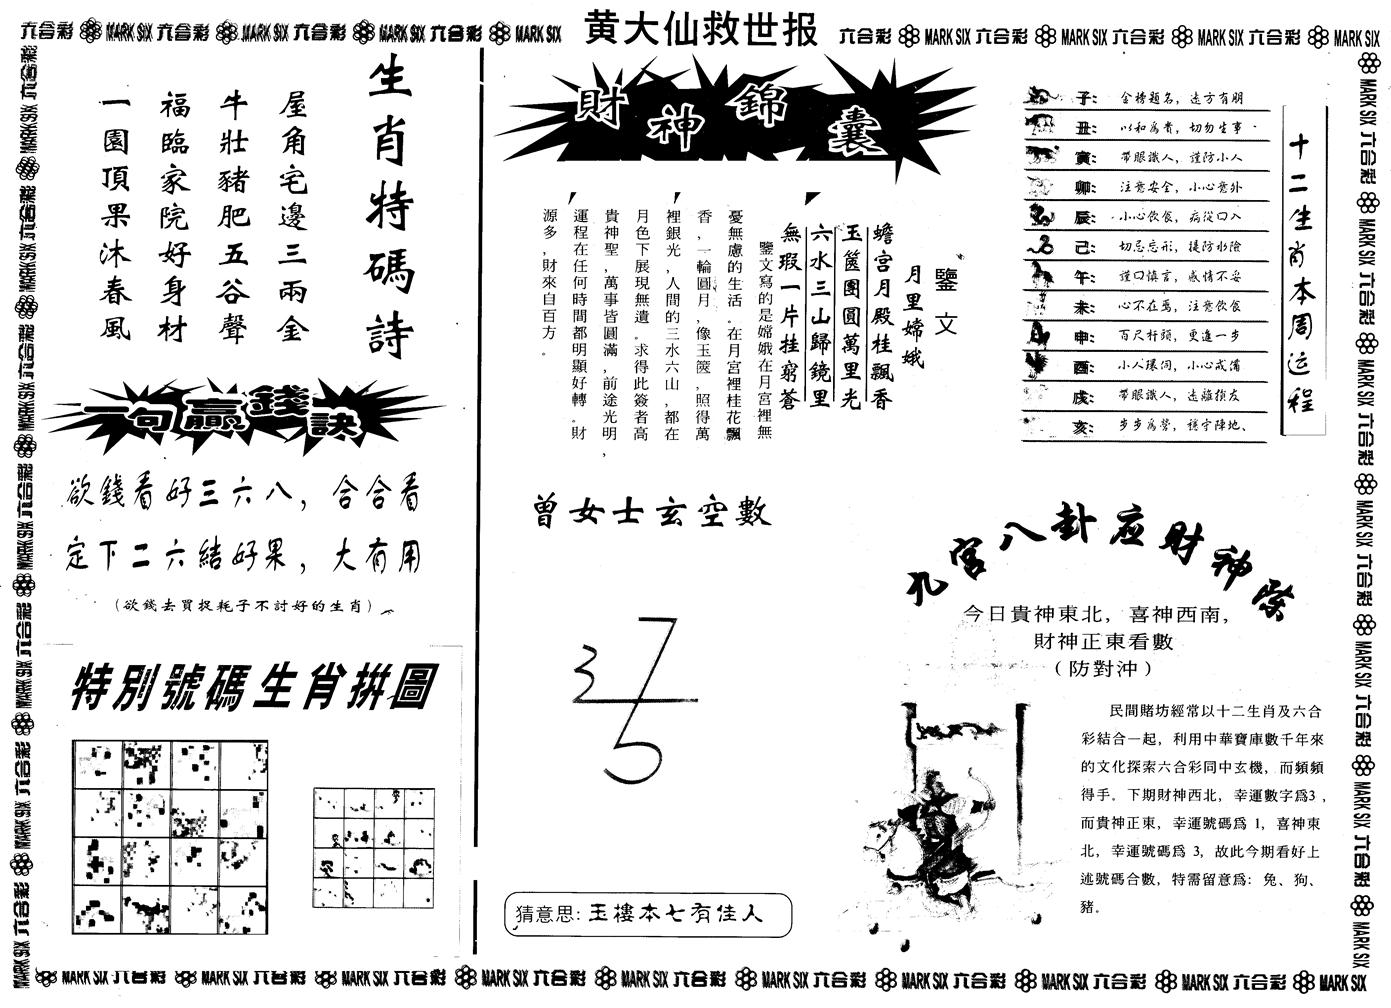 黄大仙救世报
六合彩 MARK SIX 六合彩 MARK SIX 六合彩 MARK SIX 六合彩 MARK SIX
六合彩 MARK SIX 六合彩 MARK SIX 六合彩 MARK SIX 六合彩 MARK SIX
生肖特碼詩
屋角宅邊三兩金
牛壯豬肥五谷聲
福臨家院好身材
一園頂果沐春風
一句贏錢訣
欲錢看好三六八，合合看
定下二六結好果，大有用
（欲錢去買捉耗子不討好的生肖）
特別號碼生肖拼圖
財神錦囊
鑒文
月里嫦娥
蟾宮月殿桂飄香
玉篋團圓萬里光
六水三山歸鏡里
無瑕一片挂窮蒼
鑒文寫的是嫦娥在月宮裡無
憂無慮的生活。在月宮裡桂花飄
香，一輪圓月，像玉篋，照得萬
裡銀光，人間的三水六山，都在
月色下展現無遺。求得此簽者高
貴神聖，萬事皆圓滿，前途光明，
運程在任何時間都明顯好轉。財
源多，財來自百方。
曾女士玄空數
3
7
5
猜意思: 玉樓本七有佳人
十二生肖本周运程
子: 金榜題名，遠方有朋
丑: 以和為貴，切勿生事
寅: 帶眼識人，謹防小人
卯: 注意安全，小心意外
辰: 小心飲食，病從口入
己: 切忌忘形，提防水險
午: 謹口慎言，感情不妥
未: 心不在焉，注意飲食
申: 百尺杆頭，更進一步
酉: 小人環伺，小心戒備
戌: 帶眼識人，遠離損友
亥: 步步為營，穩守陣地、
九宮八卦应財神際
今日貴神東北，喜神西南，
財神正東看數
（防對沖）
民間賭坊經常以十二生肖及六合
彩結合一起，利用中華寶庫數千年來
的文化探索六合彩同中玄機，而頻頻
得手。下期財神西北，幸運數字爲3，
而貴神正東，幸運號碼爲 1，喜神東
北，幸運號碼爲 3，故此今期看好上
述號碼合數，特需留意爲：兔、狗、
豬。
MARK SIX 六合彩 MARK SIX 六合彩 MARK SIX 六合彩 MARK SIX 六合彩 MARK SIX 六合彩 MARK SIX 六合彩 MARK SIX 六合彩 MARK SIX 六合彩 MARK SIX 六合彩 MARK SIX